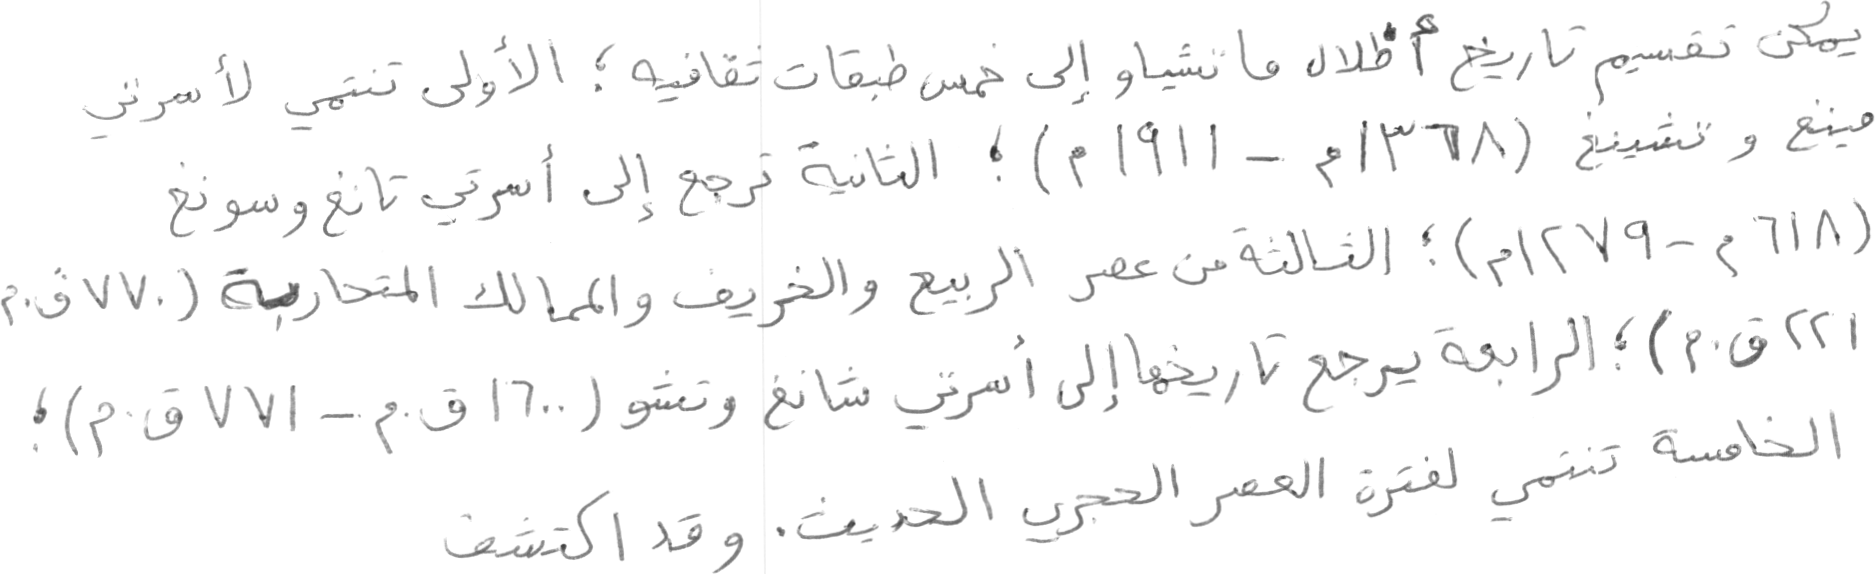 يمكن تقسيم تاريخ أطلال ماتشياو إلى خمس طبقات ثقافيه؛ الأولى تنتمي لأسرتي
مينغ و تشينغ (١٣٦٨م – ١٩١١م)؛ الثانية ترجع إلى أسرتي تانغ وسونغ
(٦١٨م – ١٢٧٩م)؛ الثالثة من عصر الربيع والخريف والممالك المتحاربة (٧٧٠ق.م
٢٢١ق.م)؛ الرابعة يرجع تاريخها إلى أسرتي شانغ وتشو (١٦٠٠ ق.م – ٧٧١ ق.م)؛
الخامسة تنتمي لفترة العصر الحجري الحديث. وقد اكتشف